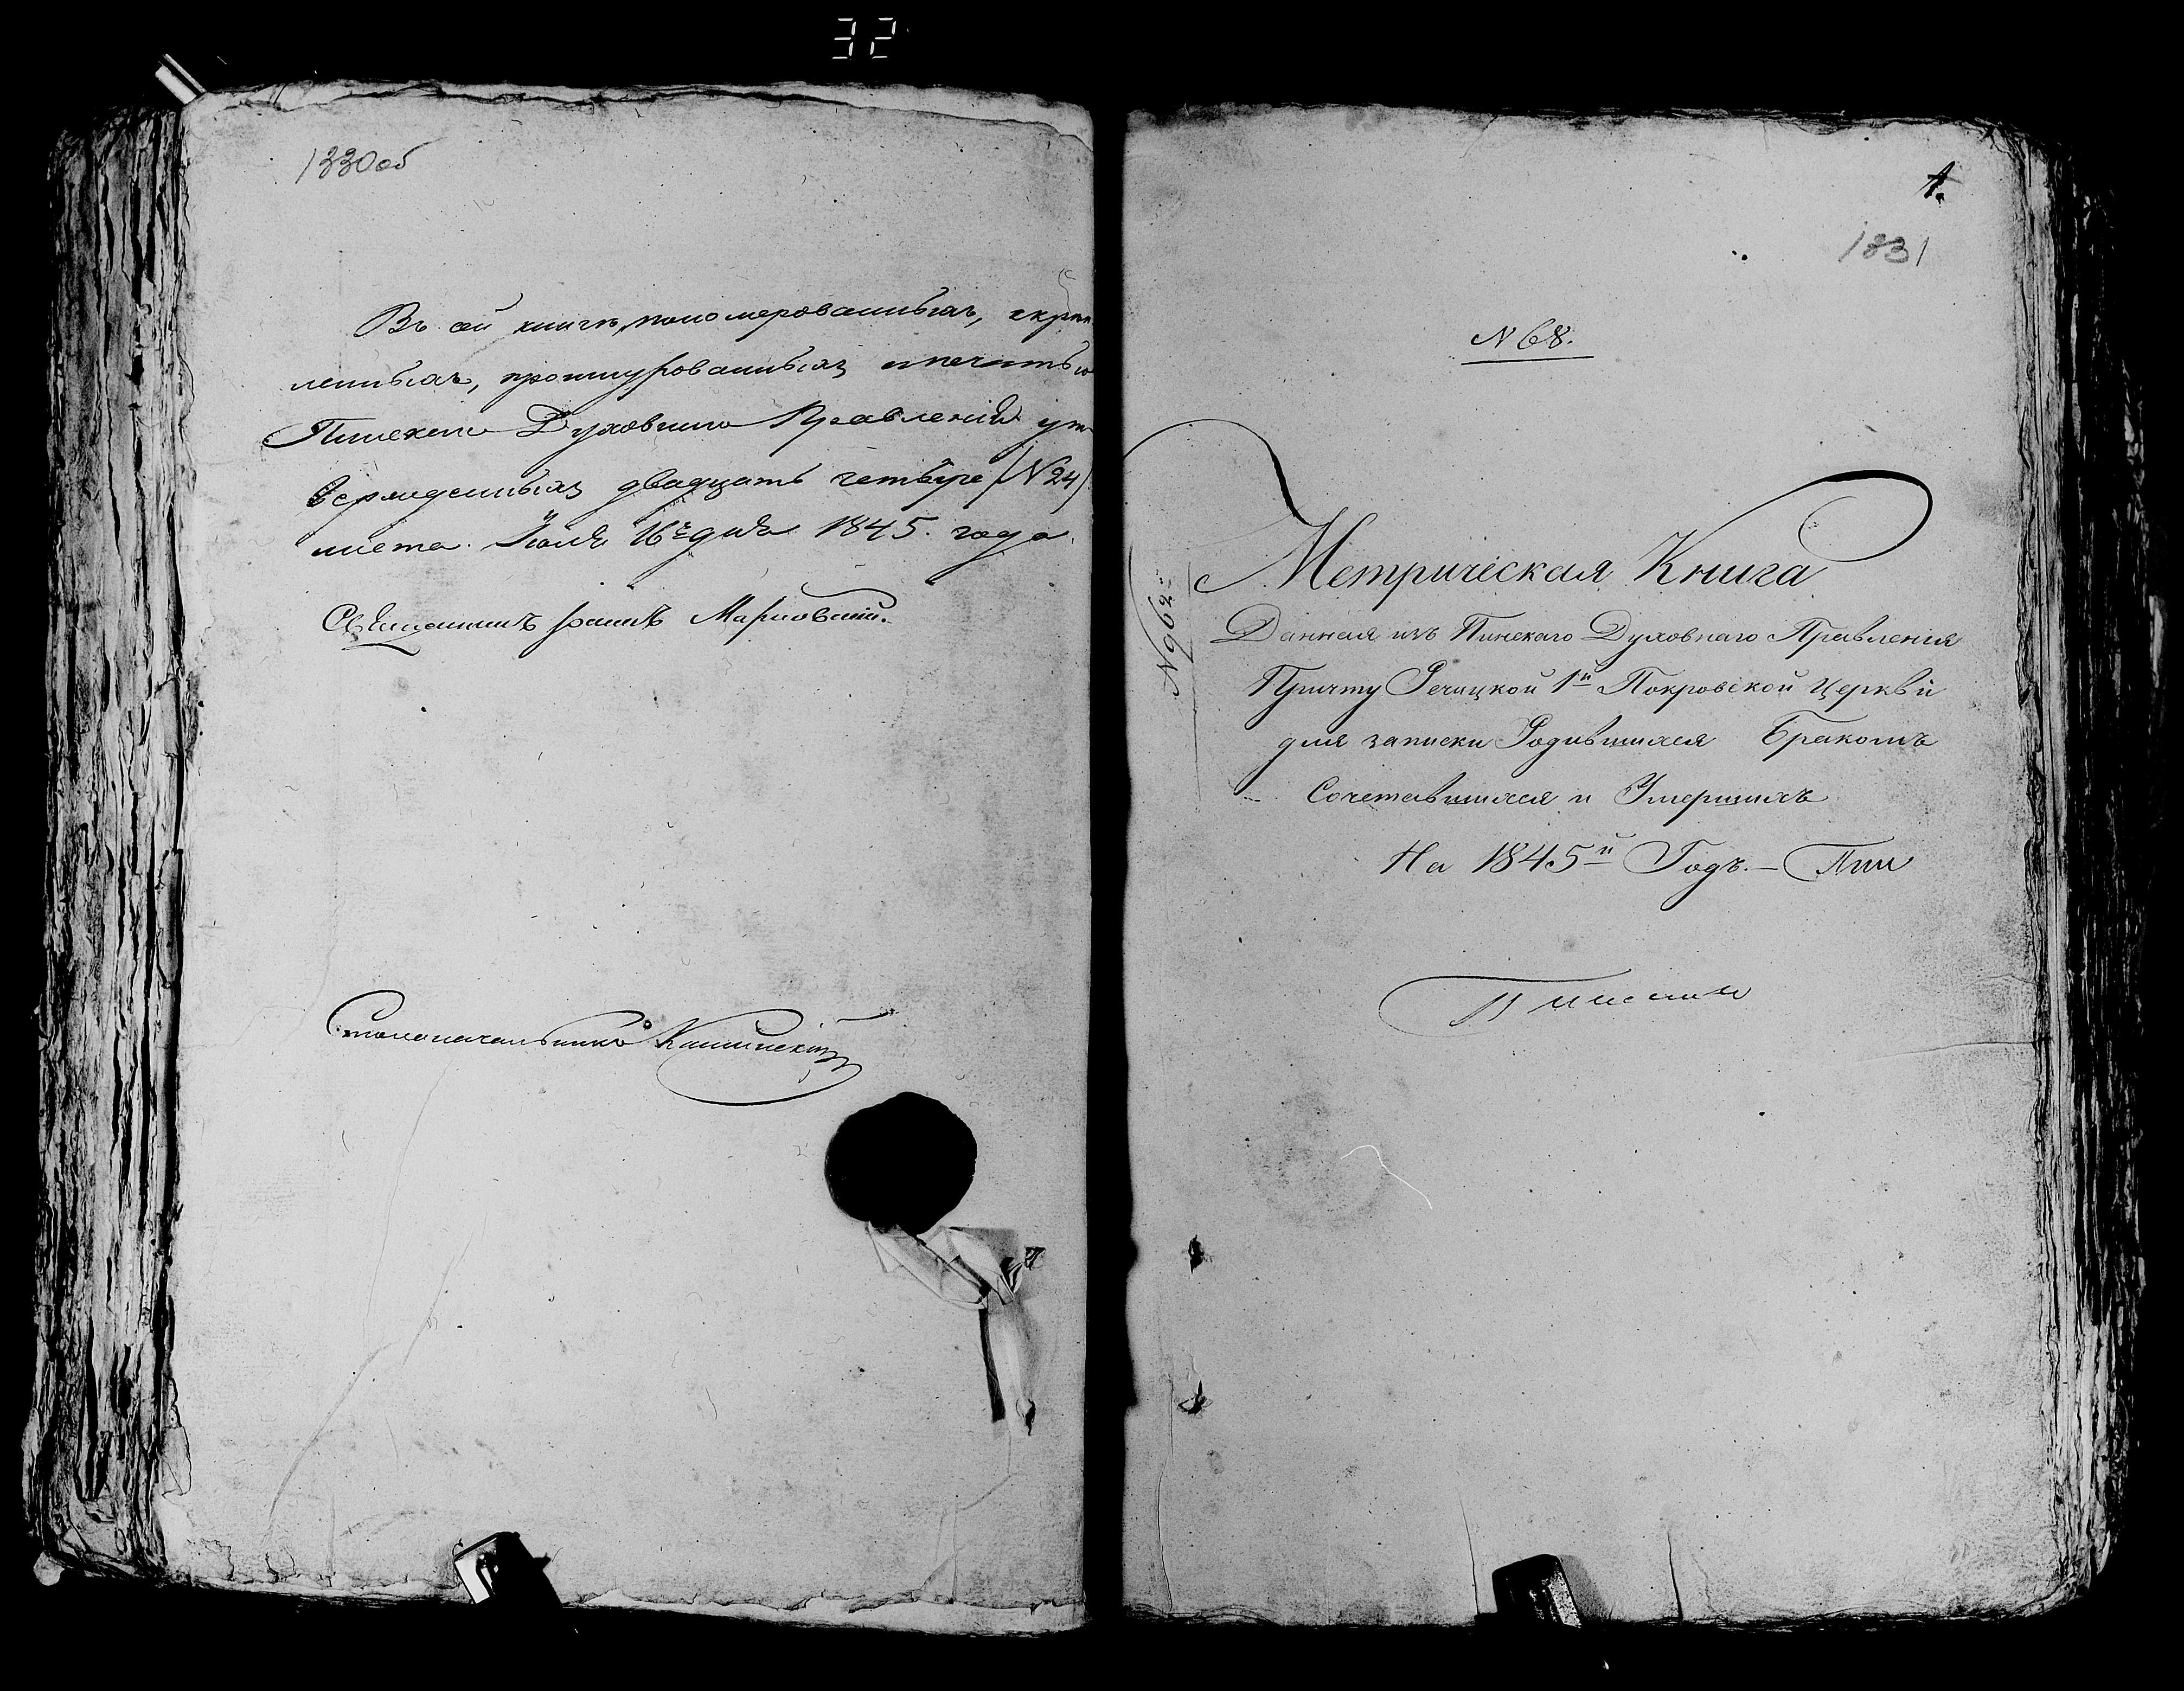 32
1330об
Въ сей книгѣ, пономерованныхъ, скреп
ленныхъ, прошнурованныхъ и печатью
Пинскаго Духовнаго Правленія ут
вержденныхъ двадцать четыре (N 24)
листа. Іюля 16го дня 1845. года.
Священникъ Іоаннъ
Столоначальникъ
1.
1331
N 68.
Метрическая Книга
Данная изъ Пинскаго Духовнаго Правленія
Причту Речицкой 1й Покровской Церкви
для записки Родившихся Бракомъ
Сочетавшихся и Умершихъ
На 1845й Годъ. —